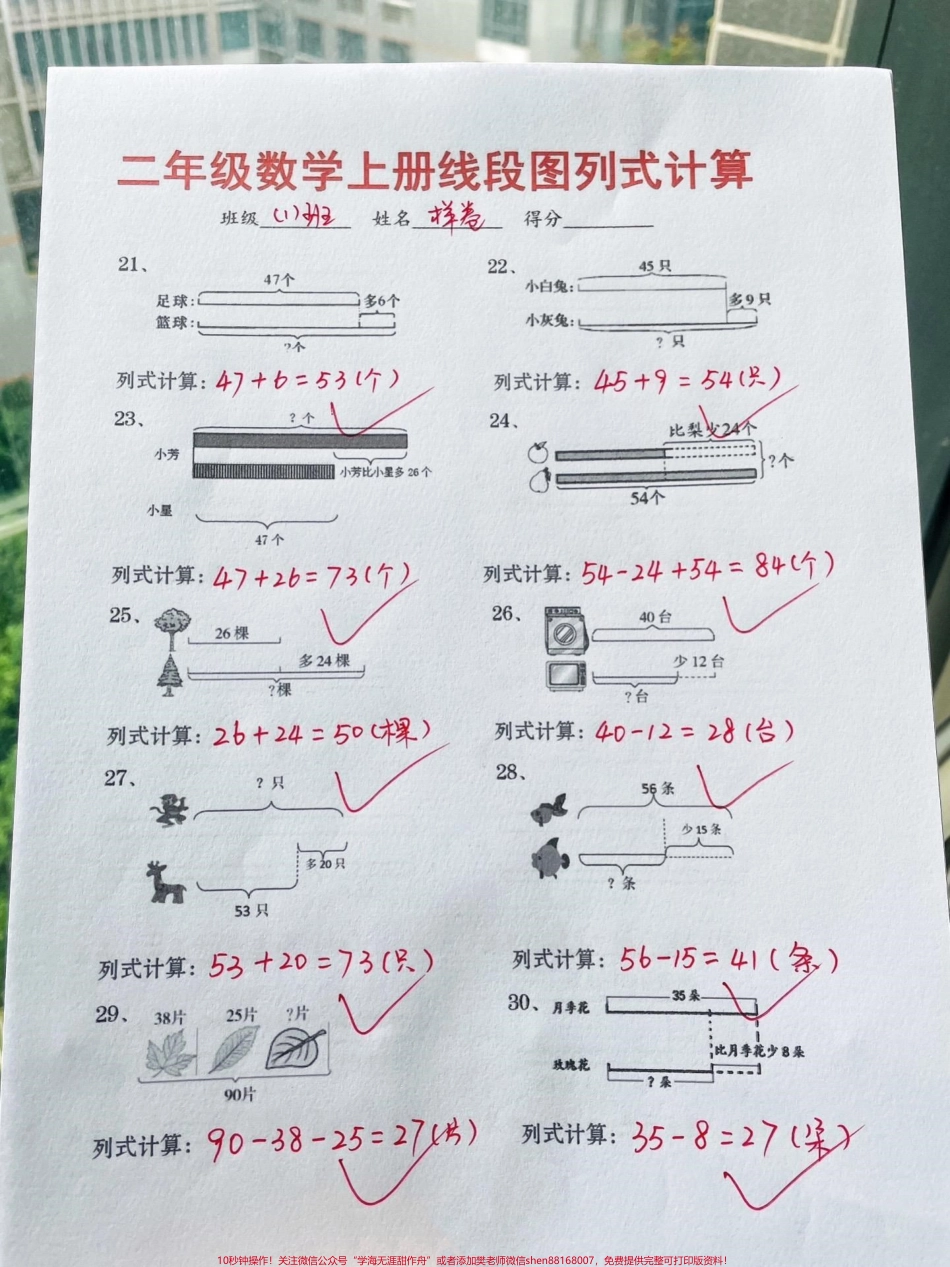 二年级数学上册线段图列式计算
班级(1)班 姓名样卷 得分
21、
47个
足球:
多6个
篮球:
?个
列式计算:47+6=53(个)
22、
45只
小白兔:
多9只
小灰兔:
? 只
列式计算:45+9=54(只)
23、
? 个
小芳
小芳比小星多26个
小星
47个
列式计算:47+26=73(个)
24、
比梨少24个
?个
54个
列式计算:54-24+54=84(个)
25、
26棵
多24棵
?棵
列式计算:26+24=50(棵)
26、
40台
少12台
?台
列式计算:40-12=28(台)
27、
? 只
多20只
53只
列式计算:53+20=73(只)
28、
56条
少15条
? 条
列式计算:56-15=41(条)
29、
38片 25片 ?片
90片
列式计算:90-38-25=27(片)
30、
35朵
月季花
比月季花少8朵
玫瑰花
? 朵
列式计算:35-8=27(朵)
10秒钟操作!关注微信公众号“学海无涯甜作舟”或者添加樊老师微信shen88168007,免费提供完整可打印版资料!